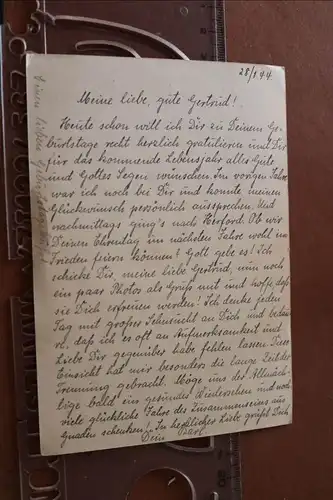 28/1 44.
Meine liebe, gute Gertrud!
Heute schon will ich Dir zu Deinem Ge-
burtstage recht herzlich gratulieren und Dir
für das kommende Lebensjahr alles Gute
und Gottes Segen wünschen. Im vorigen Jahre
war ich noch bei Dir und konnte meinen
Glückwunsch persönlich aussprechen. Und
nachmittags ging's nach Herford. Ob wir
Deinen Ehrentag im nächsten Jahre wohl im
Frieden feiern können? Gott geb es! Ich
schicke Dir, meine liebe Gertrud, nun noch
ein paar Photos als Gruß mit und hoffe, daß
sie Dich erfreuen werden! Ich denke jeden
Tag mit großer Sehnsucht an Dich und bedau-
re, daß ich es oft an Aufmerksamkeit und
Liebe Dir gegenüber habe fehlen lassen. Diese
Einsicht hat mir besonders die lange Zeit der
Trennung gebracht. Möge uns der Allmäch-
tige bald ein gesundes Wiedersehen und noch
viele glückliche Jahre des Zusammenseins aus
Gnaden schenken! In herzlicher Liebe grüßt Dich
Dein